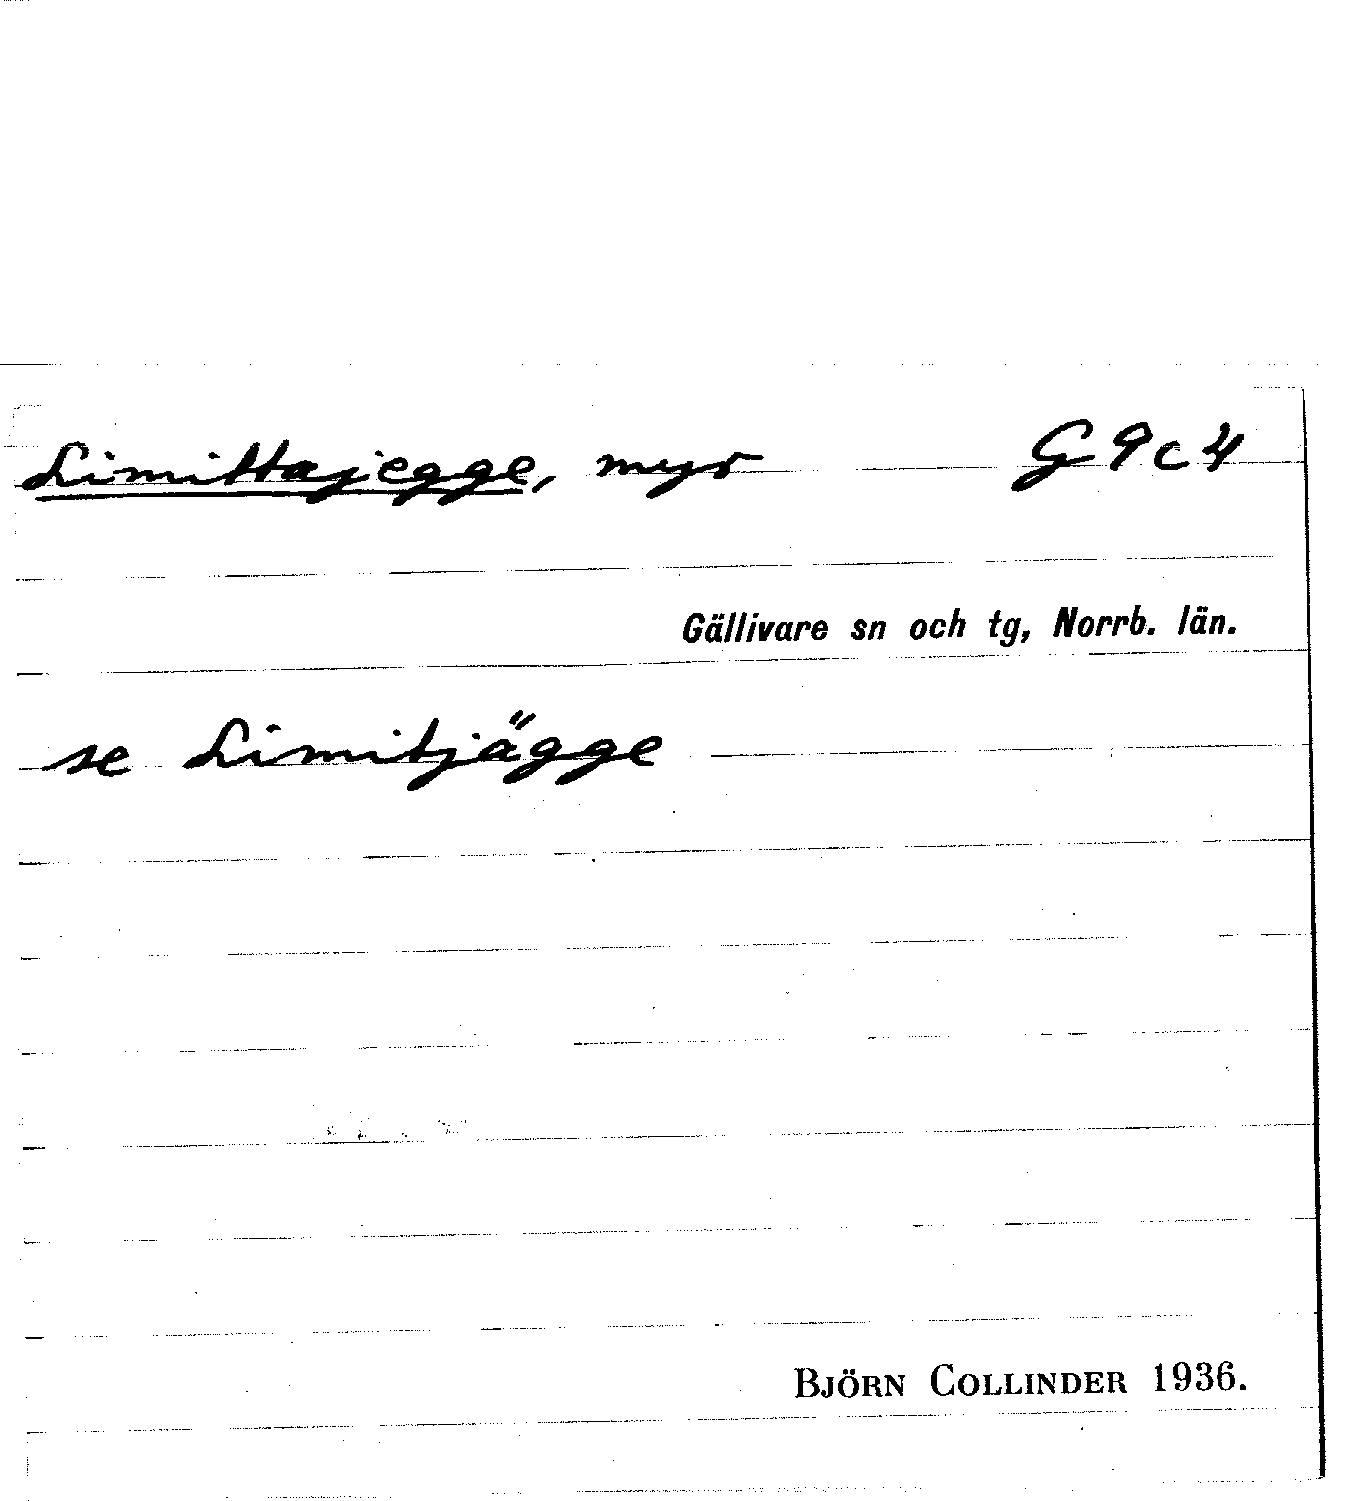 Limittajegge, myr G 9 c 4
Gällivare sn och tg, Norrb. län.
se Limitjägge
BJÖRN COLLINDER 1936.